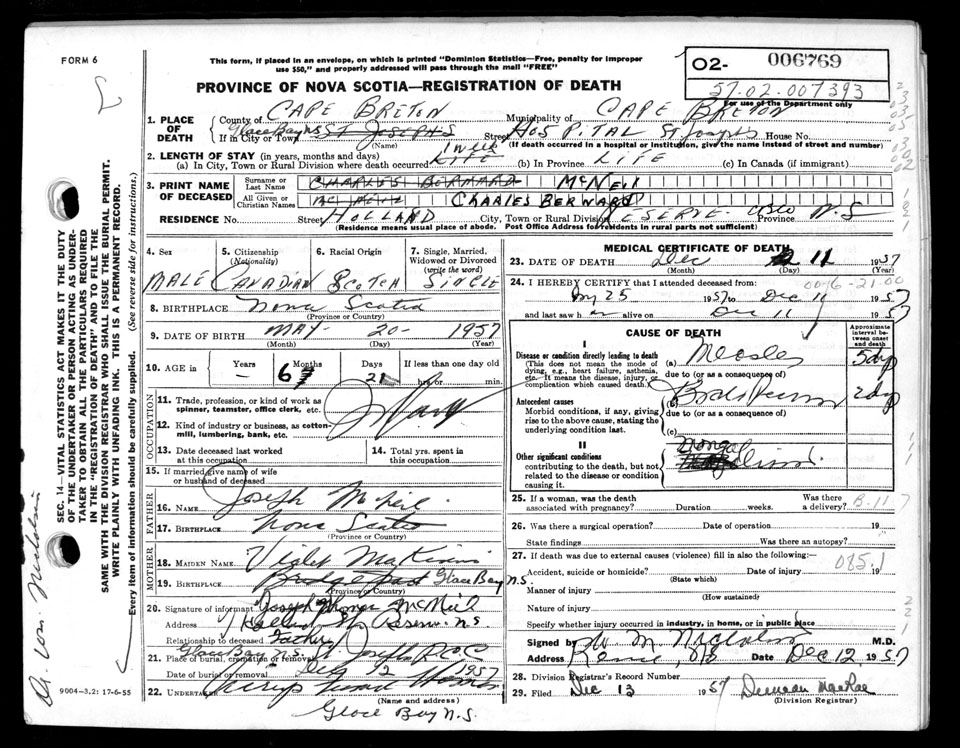 FORM 6
This form, if placed in an envelope, on which is printed "Dominion Statistics—Free, penalty for improper
use $50," and properly addressed will pass through the mail "FREE"
PROVINCE OF NOVA SCOTIA—REGISTRATION OF DEATH
02- 006769
57.02.007393
For use of the Department only
1. PLACE OF DEATH
County of CAPE BRETON Municipality of CAPE BRETON
If in City or Town Glace Bay NS ST JOSEPHS Street HOSPITAL St Josephs House No.
(Name) (If death occurred in a hospital or institution, give the name instead of street and number)
2. LENGTH OF STAY (in years, months and days)
(a) In City, Town or Rural Division where death occurred 1 week LIFE (b) In Province LIFE (c) In Canada (if immigrant)
3. PRINT NAME OF DECEASED
Surname or Last Name CHARLES BERNARD McNeil
All Given or Christian Names CHARLES BERNARD
RESIDENCE No. Street HOLLAND City, Town or Rural Division RESERVE Province N.S
(Residence means usual place of abode. Post Office Address for residents in rural parts not sufficient)
4. Sex 5. Citizenship (Nationality) 6. Racial Origin 7. Single, Married, Widowed or Divorced (write the word)
MALE CANADIAN SCOTCH SINGLE
8. BIRTHPLACE Nova Scotia
(Province or Country)
9. DATE OF BIRTH MAY 20- 1957
(Month) (Day) (Year)
10. AGE in Years Months Days If less than one day old
— 6 21 hrs or min.
OCCUPATION
11. Trade, profession, or kind of work as
spinner, teamster, office clerk, etc.
12. Kind of industry or business, as cotton-
mill, lumbering, bank, etc.
13. Date deceased last worked
at this occupation
14. Total yrs. spent in
this occupation
15. If married give name of wife
or husband of deceased
FATHER
16. NAME Joseph McNeil
17. BIRTHPLACE Nova Scotia
(Province or Country)
MOTHER
18. MAIDEN NAME Violet MacKinnon
19. BIRTHPLACE Bridgeport Glace Bay N.S.
(Province or Country)
20. Signature of informant Joseph Thomas McNeil
Address Holland St Reserve N.S
Relationship to deceased Father
Glace Bay N.S. St. Josephs
21. Place of burial, cremation or removal
Date of burial or removal Dec 12 1957
22. UNDERTAKER
(Name and address)
Glace Bay N.S.
MEDICAL CERTIFICATE OF DEATH
23. DATE OF DEATH Dec 11 1957
(Month) (Day) (Year)
24. I HEREBY CERTIFY that I attended deceased from:
25 1957 to Dec 11 1957
and last saw h im alive on Dec 11 1957
CAUSE OF DEATH
Approximate interval between onset and death
I
Disease or condition directly leading to death
(This does not mean the mode of
dying, e.g., heart failure, asthenia,
etc. It means the disease, injury, or
complication which caused death.)
(a) Measles 5 dys
due to (or as a consequence of)
(b) 2 dys
Antecedent causes
Morbid conditions, if any, giving
rise to the above cause, stating the
underlying condition last.
due to (or as a consequence of)
(c)
II
Other significant conditions
contributing to the death, but not
related to the disease or condition
causing it.
Mongolism
25. If a woman, was the death
associated with pregnancy? Duration weeks. Was there
a delivery? B-11-7
26. Was there a surgical operation? Date of operation 19
State findings Was there an autopsy?
27. If death was due to external causes (violence) fill in also the following:—
Accident, suicide or homicide? Date of injury 19
085.1
(State which)
Manner of injury
(How sustained)
Nature of injury
Specify whether injury occurred in industry, in home, or in public place
Signed by M.D.
Address Date Dec 12, 1957
28. Division Registrar's Record Number
29. Filed Dec 13 1957 Duncan MacRae
(Division Registrar)
SEC. 14—VITAL STATISTICS ACT MAKES IT THE DUTY
OF THE UNDERTAKER OR PERSON ACTING AS UNDER-
TAKER TO OBTAIN ALL THE PARTICULARS REQUIRED
IN THE "REGISTRATION OF DEATH" AND TO FILE THE
SAME WITH THE DIVISION REGISTRAR WHO SHALL ISSUE THE BURIAL PERMIT.
WRITE PLAINLY WITH UNFADING INK. THIS IS A PERMANENT RECORD.
Every item of information should be carefully supplied. (See reverse side for instructions.)
9004-3.2: 17-6-55